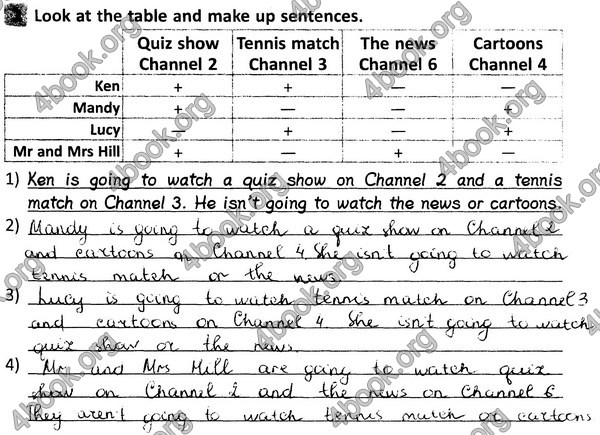 Look at the table and make up sentences.
Quiz show Tennis match The news Cartoons
Channel 2 Channel 3 Channel 6 Channel 4
Ken + + — —
Mandy + — — +
Lucy — + — +
Mr and Mrs Hill + — + —
1) Ken is going to watch a quiz show on Channel 2 and a tennis
match on Channel 3. He isn't going to watch the news or cartoons.
2) Mandy is going to watch a quiz show on Channel 2
and cartoons on Channel 4. She isn't going to watch
tennis match or the news.
3) Lucy is going to watch tennis match on Channel 3
and cartoons on Channel 4. She isn't going to watch
quiz show or the news.
4) Mr and Mrs Hill are going to watch quiz
show on Channel 2 and the news on Channel 6.
They aren't going to watch tennis match or cartoons
4book.org